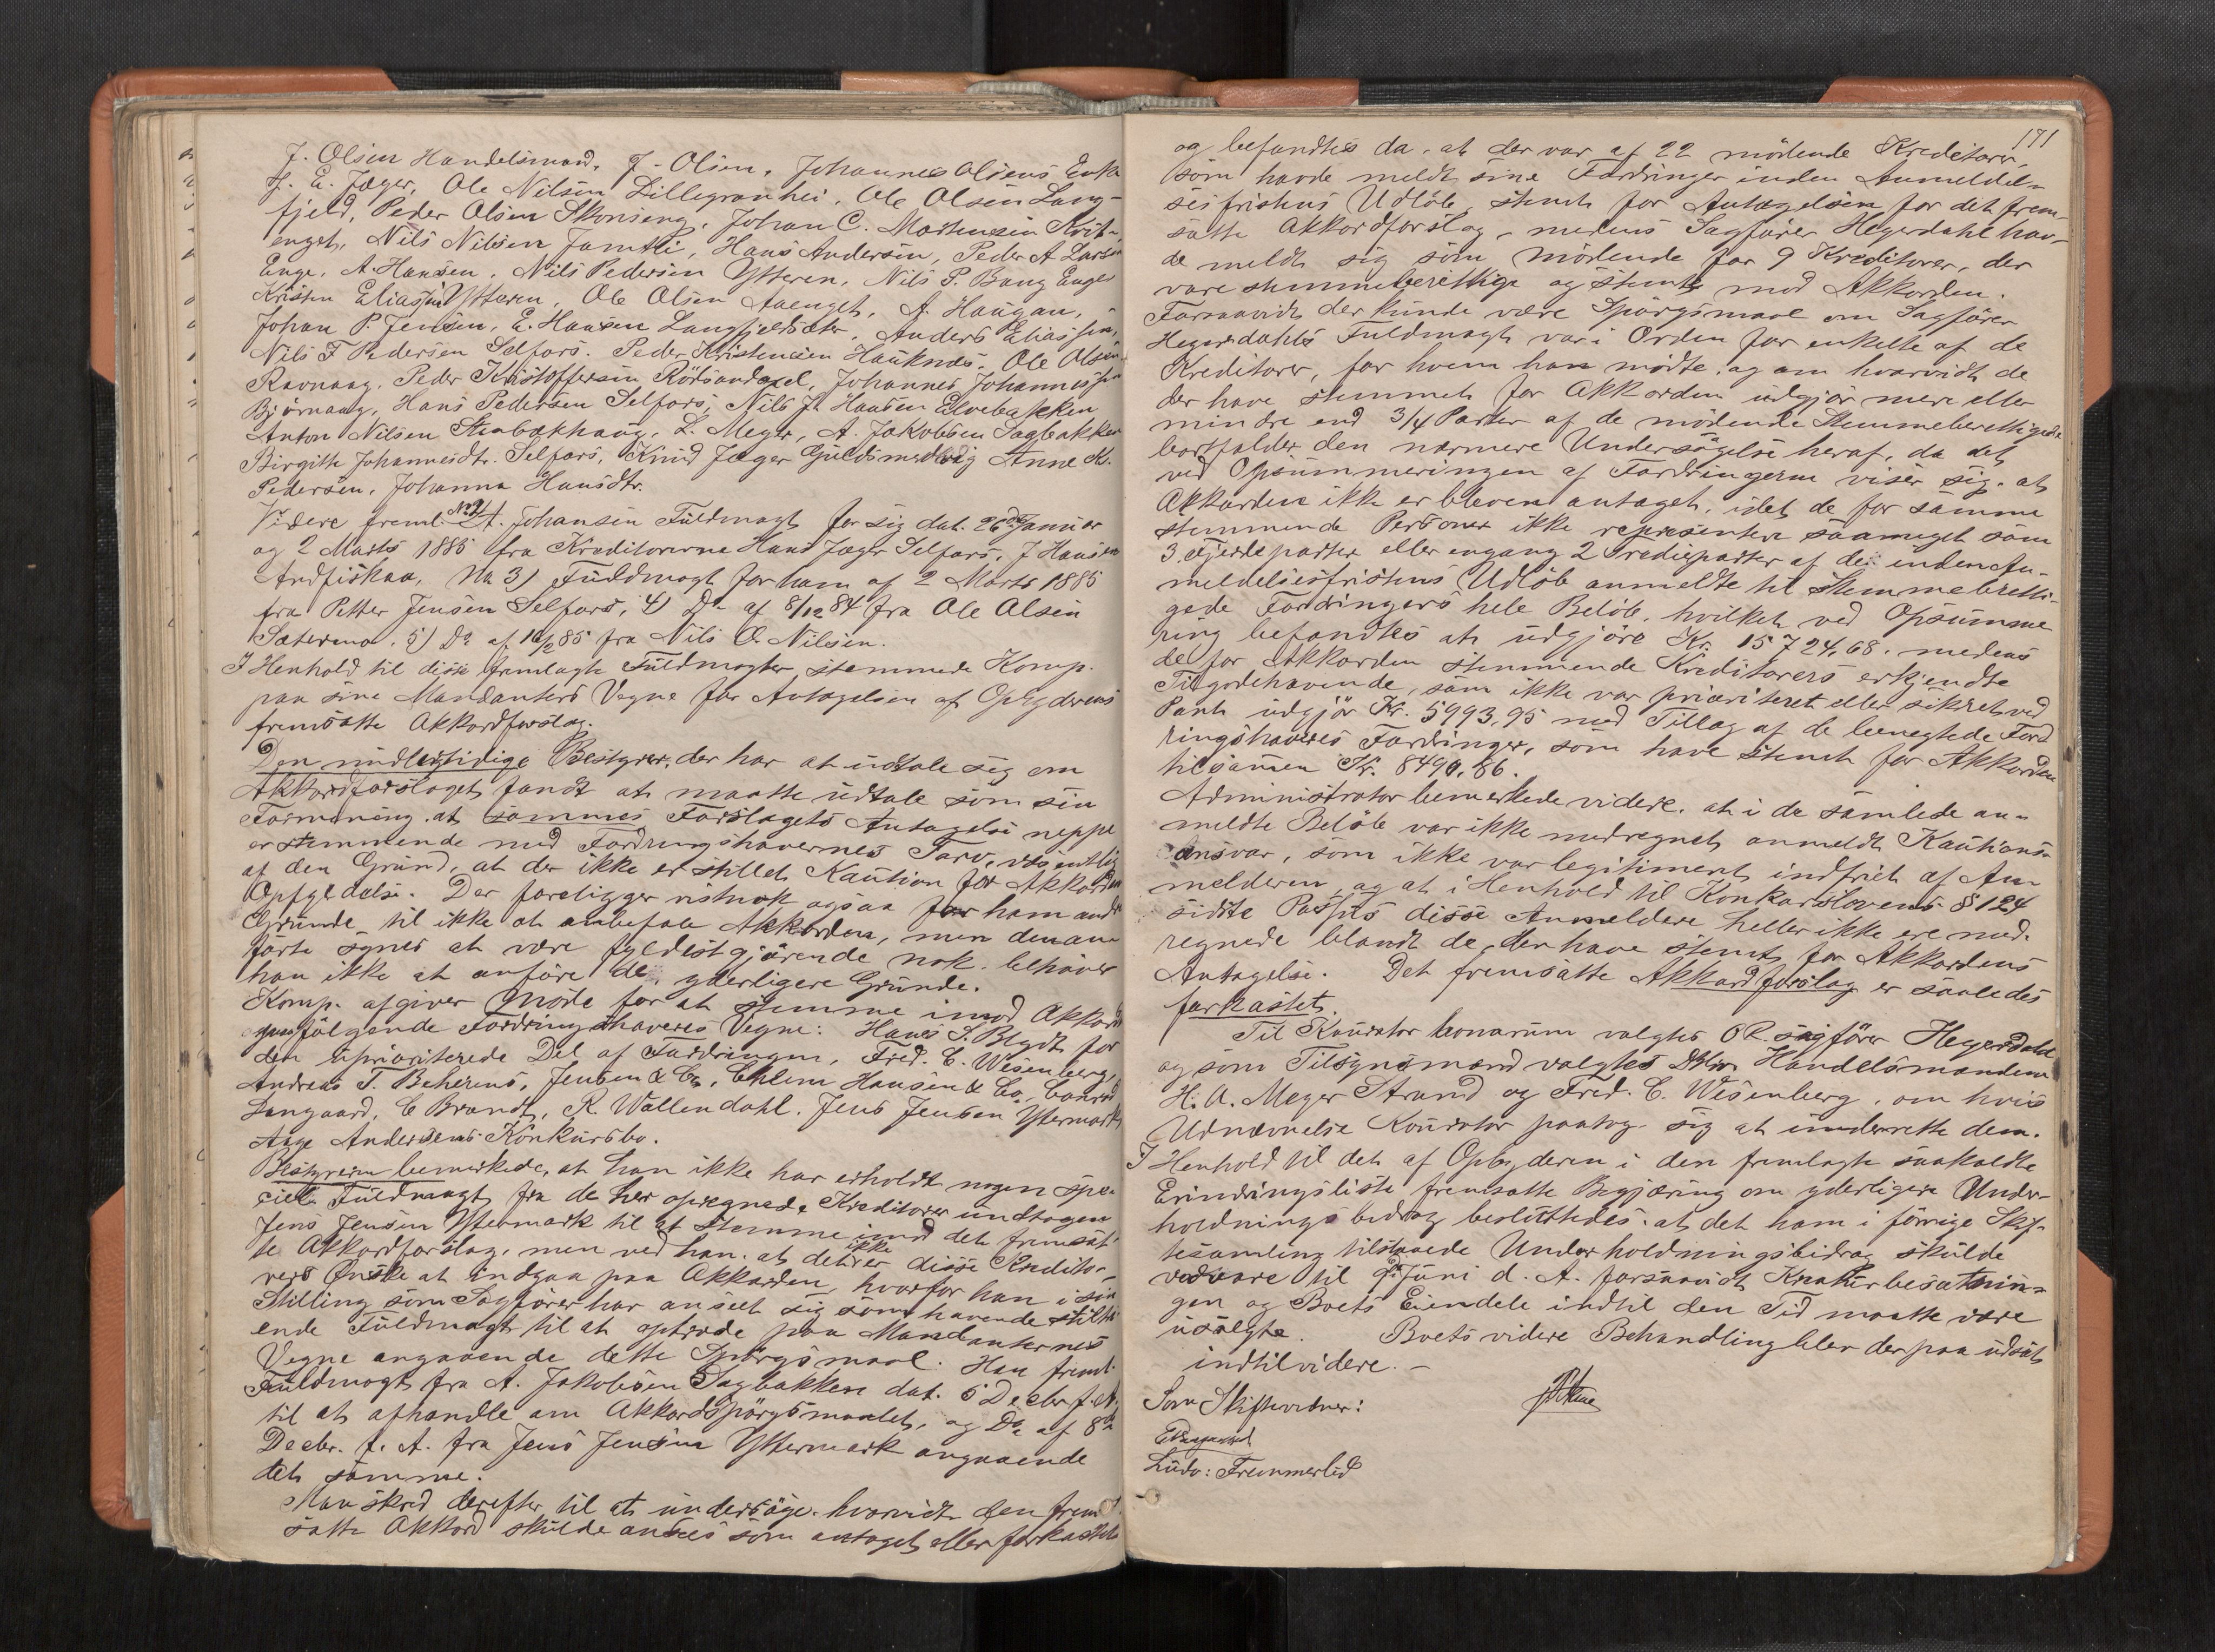 J. Olsen Handelsmand, J. Olsen, Johannes Olsens Enke
H. E. Jæger, Ole Nilsen Lillegranhei, Ole Olsen Lang-
fjeld, Peder Olsen Skonseng, Johan C. Mortensen Kvit-
enget, Nils Nilsen Jamtli, Hans Andersen, Peder A Larsen
Enge, A. Hansen, Nils Pedersen Ytteren, Nils P. Bang Enget
Kristen Eliassen Ytteren, Ole Olsen Aaenget, A. Haugan,
Johan P. Jensen, E. Hansen Langfjeldsæter, Anders Eliassen,
Nils F Pedersen Selfors. Peder Kristensen Hauknæs. Ole Olsen
Ravnaag. Peder Kristoffersen Rödsandaxel, Johannes Johannessen
Björnaag, Hans Pedersen Selfors, Nils J. Hansen Elvebakken
Anton Nilsen Stenbækhaug, L. Meyer, A. Jakobsen Sagbakken
Birgitte Johannesdtr. Selfors, Knud Jæger Guldsmedvig Anne K.
Pedersen, Johanna Hansdtr.
Videre freml. No 2/ A. Johansen Fuldmagt for sig dat. 26de Januar
og 2 Marts 1885 fra Kreditorerne Hans Jæger Selfors, J Hansen
Andfiskaa, No 3) Fuldmagt for ham af 2 Marts 1885
fra Petter Jensen Selfors, 4) Do af 8/12 84 fra Ole Olsen
Sætermo. 5) Do af 10/2 85 fra Nils O. Nilsen.
I Henhold til disse fremlagte Fuldmagter stemmede Komp.
paa sine Mandanters Vegne for Antagelsen af Opbyderens
fremsatte Akkordforslag.
Den midlertidige Bestyrer, der har at udtale sig om
Akkordforslaget fandt at maatte udtale som sin
Formening at sammes Forslagets Antagelse neppe
er stemmende med Fordringshavernes Tarv, væsentlig
af den Grund, at der ikke er stillet Kaution for Akkordens
Opfyldelse. Der foreligger vistnok ogsaa for ham andre
Grunde til ikke at anbefale Akkorden, men den an-
førte synes at være fyldestgjørende nok, behøver
han ikke at anføre de yderligere Grunde.
Komp. afgiver Møde for at stemme imod Akkorden
paa følgende Fordringshaveres Vegne: Hans S. Blydt for
den uprioriterede Del af Fordringen, Fred. C. Wesenberg,
Andreas T. Behrens, Jensen & Co, Ehlert Hansen & Co, Conrad
Langaard, C Brandt, R. Wallendahl. Jens Jensen Yttermark
Aage Andersens Konkursbo.
Bestyreren bemerkede, at han ikke har erholdt nogen spe-
ciel Fuldmagt fra de her opregnede Kreditorer undtagen
Jens Jensen Yttermark til at stemme imod det fremsat-
te Akkordforslag, men ved han at det ikke er disse Kredito-
rers Ønske at indgaa paa Akkorden, hvorfor han i sin
Stilling som Sagfører har anseet sig som havende stiltie
ende Fuldmagt til at optræde paa Mandanternes
Vegne angaaende dette Spørgsmaal. Han freml.
Fuldmagt fra A. Jakobsen Sagbakken dat. 5 Decbr f. A.
til at afhandle om Akkordspørgsmaalet, og Do af 8de
Decbr. f. A. fra Jens Jensen Yttermark angaaende
det samme.
Man skred derefter til at undersøge hvorvidt den frem-
satte Akkord skulde ansees som antaget eller forkastet
171
og befandtes da, at der var af 22 mödende Kreditorer,
som havde meldt sine Fordringer inden Anmeldel-
sesfristens Udløb stemt for Antagelsen for det frem-
satte Akkordforslag, medens Sagfører Hegerdahl hav-
de meldt sig som mödende for 9 Kreditorer, der
vare stemmeberettige og stemte mod Akkorden.
Forsaavidt der kunde være Spørgsmaal om Sagfører
Hegerdahls Fuldmagt var i Orden for enkelte af de
Kreditorer, for hvem han mödte, og om hvorvidt de
der have stemmet for Akkorden udgjør mere eller
mindre end 3/4 Parter af de mödende Stemmeberettigede
bortfalder den nærmere Undersøgelse heraf, da det
ved Opsummeringen af Fordringerne viser sig, at
Akkorden ikke er bleven antaget, idet de for samme
stemmende Personer ikke representere saameget som
3 Fjerdeparter eller engang 2 Trediеparter af de inden An-
meldelsesfristens Udløb anmeldte til Stemmeberetti-
gede Fordringers hele Beløb, hvilket ved Opsumme
ring befandtes at udgjøre Kr. 15724,68. medens
de for Akkorden stemmende Kreditorers erkjendte
Tilgodehavende, som ikke var prioriteret eller sikret ved
Pant udgjør Kr. 5993,95 med Tillæg af de benegtede Ford
ringshaveres Fordringer, som have stemt for Akkorden
tilsammen Kr. 8490,86.
Administrator bemerkede videre, at i de samlede an-
meldte Beløb var ikke medregnet anmeldt Kautions-
ansvar, som ikke var legitimeret indfriet af An-
melderen, og at i Henhold til Konkurslovens § 124
sidste Passus disse Anmeldere heller ikke ere med-
regnede blandt de, der have stemt for Akkordens
Antagelse. Det fremsatte Akkordforslag er saaledes
forkastet.
Til Kurator bonorum valgtes OR.sagfører Hegerdahl
og som Tilsynsmænd valgtes Handelsmændene
H. A. Meyer Strand og Fred. C. Wesenberg, om hvis
Udnævnelse Kurator paatog sig at underrette dem.
I Henhold til det af Opbyderen i den fremlagte saakaldte
Erindringsliste fremsatte Begjæring om yderligere Under-
holdningsbidrag besluttedes, at det ham i forrige Skif-
tesamling tilstaaede Underholdningsbidrag skulde
vedvare til 9de Juni d. A. forsaavidt Kreaturbesætnin-
gen og Boets Eiendele indtil den Tid maatte være
usolgte. Boets videre Behandling blev derpaa udsat
indtilvidere. –
Som Skiftevidner:
Ludv: Fremmerlid